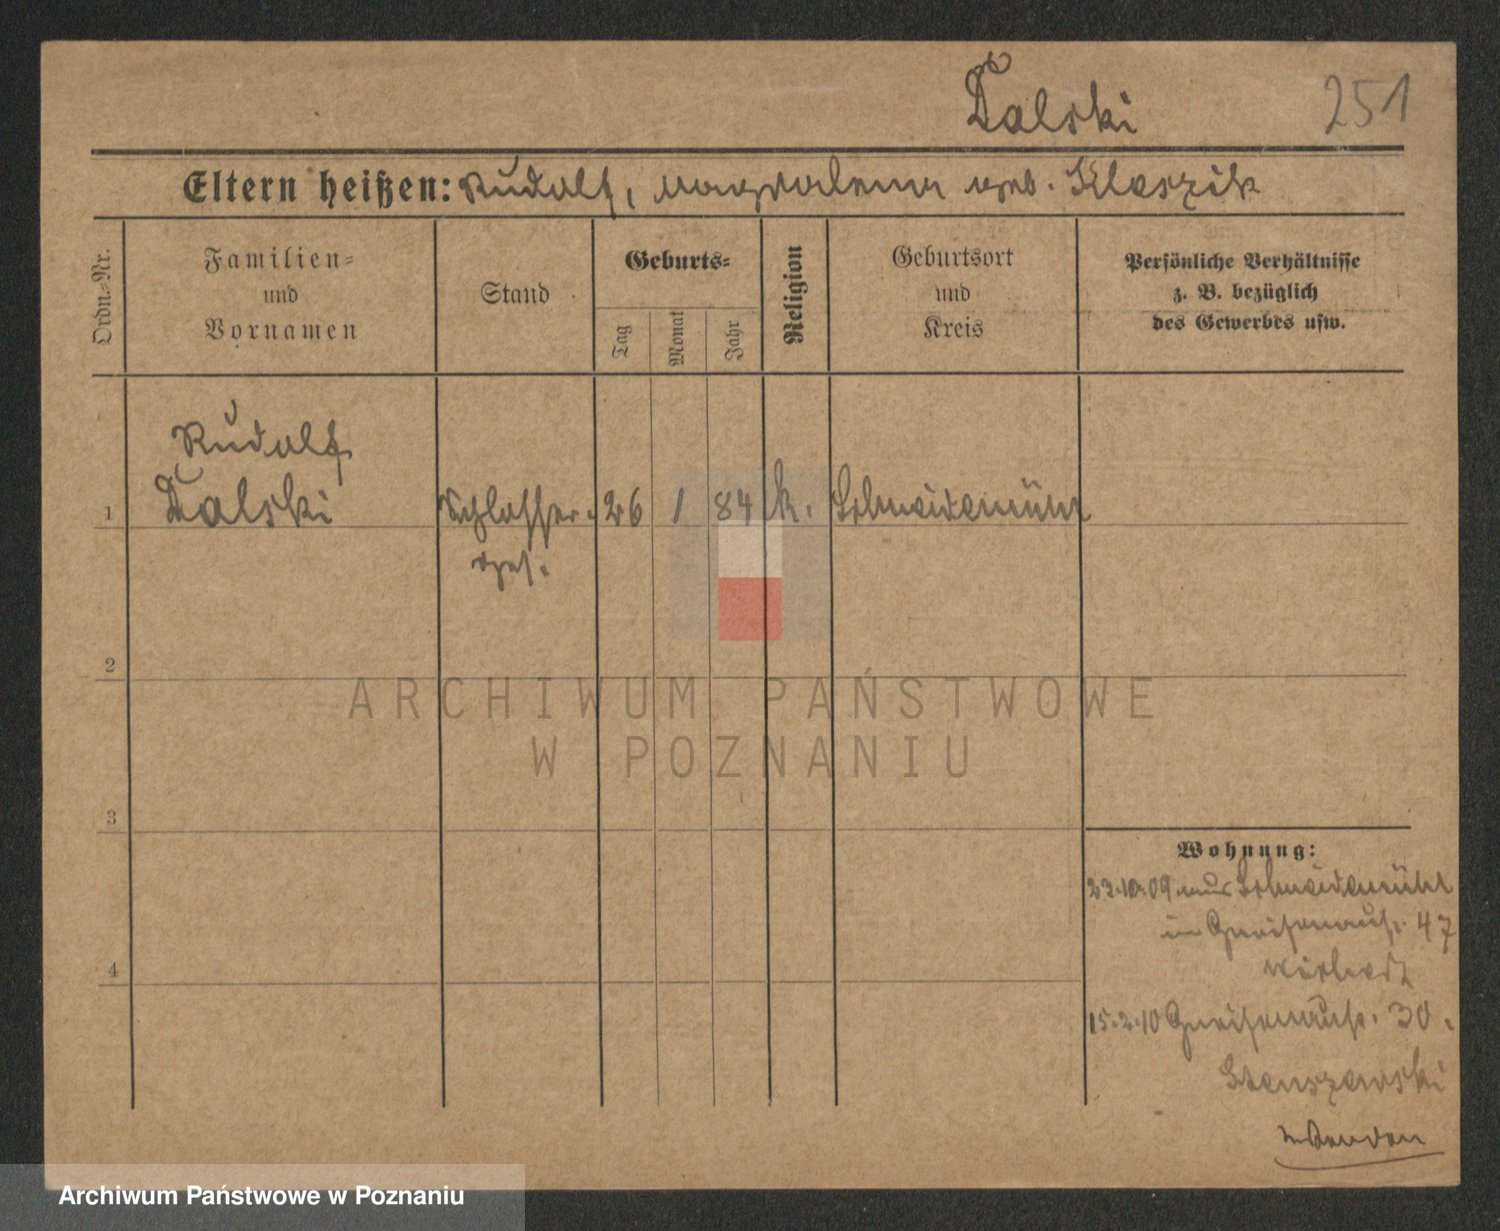 Dalski
251
Eltern heißen: Rudolf, Magdalena geb. Kloszik
Ordn.-Nr.
Familien-
und
Vornamen
Stand
Geburts-
Tag
Monat
Jahr
Religion
Geburtsort
und
Kreis
Persönliche Verhältnisse
z. B. bezüglich
des Gewerbes usw.
Rudolf
1 Dalski Schlosser- 26 1 84 k. Schneidemühl
ges.
2
ARCHIWUM PAŃSTWOWE
W POZNANIU
3
Wohnung:
23.10.09 aus Schneidemühl
in Gneisenaustr. 47
4
15.2.10 Gneisenaustr. 30.
Archiwum Państwowe w Poznaniu